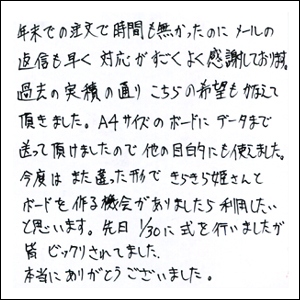 年末での注文で時間も無かったのに メールの
返信も早く 対応がすごくよく感謝しております。
過去の実積の通り こちらの希望もかなえて
頂きました。A4サイズのボードに データまで
送って頂けましたので 他の目白的にも使えました。
今度は また違った形で きらきら姫さんと
ボードを作る機会がありましたら 利用したい
と思います。先日 1/30に 式を行いましたが
皆 ビックリされてました。
本当にありがとうございました。